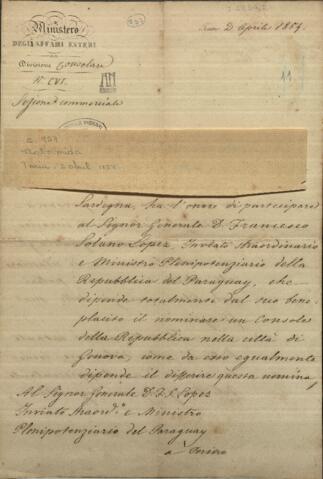 Ministero
DEGLI AFFARI ESTERI
Divisione Consolare
N. CVI.
Sezione Commerciale
2 Aprile 1854.
11
C 937
2 abril 1854.
Sardegna, ha l'onore di partecipare
al Signor Generale D. Francesco
Solano Lopez, Inviato straordinario
e Ministro Plenipotenziario della
Repubblica del Paraguay, che
dipende totalmente dal suo bene
placito il nominare un Console
della Repubblica nella città di
Genova, come da esso egualmente
dipende il differire questa nomina
Al Signor Generale D. F. S. Lopez
Inviato straord.o e Ministro
Plenipotenziario del Paraguay
a Torino